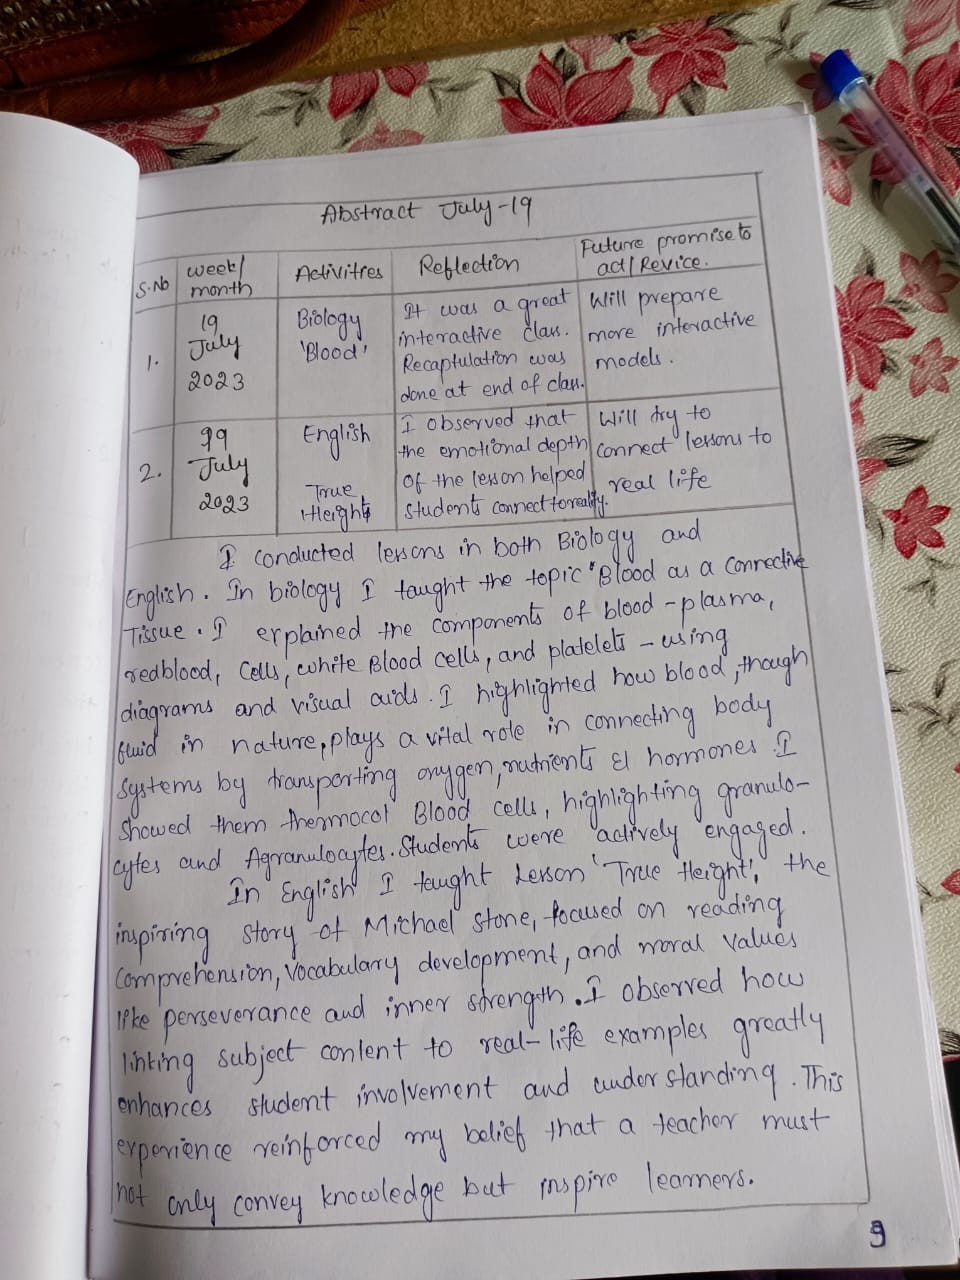 Abstract July-19
S.No week/month Activities Reflection Future promise to act/Revice.
1. 19 July 2023 Biology 'Blood' It was a great interactive class. Recaptulation was done at end of class. Will prepare more interactive models.
2. 19 July 2023 English True Height I observed that the emotional depth of the lesson helped students connect to reality. Will try to connect lessons to real life
I conducted lessons in both Biology and
English. In biology I taught the topic "Blood as a connective
Tissue. I explained the components of blood-plasma,
redblood, cells, white Blood cells, and platelets - using
diagrams and visual aids. I highlighted how blood, though
fluid in nature, plays a vital role in connecting body
systems by transporting oxygen, nutrients & hormones. I
showed them thermocol Blood cells, highlighting granulo-
cytes and Agranulocytes. Students were actively engaged.
In English I taught Lesson 'True Height', the
inspiring story of Michael stone, focused on reading
comprehension, vocabulary development, and moral values
like perseverance and inner strength. I observed how
linking subject content to real-life examples greatly
enhances student involvement and understanding. This
experience reinforced my belief that a teacher must
not only convey knowledge but inspire learners.
9